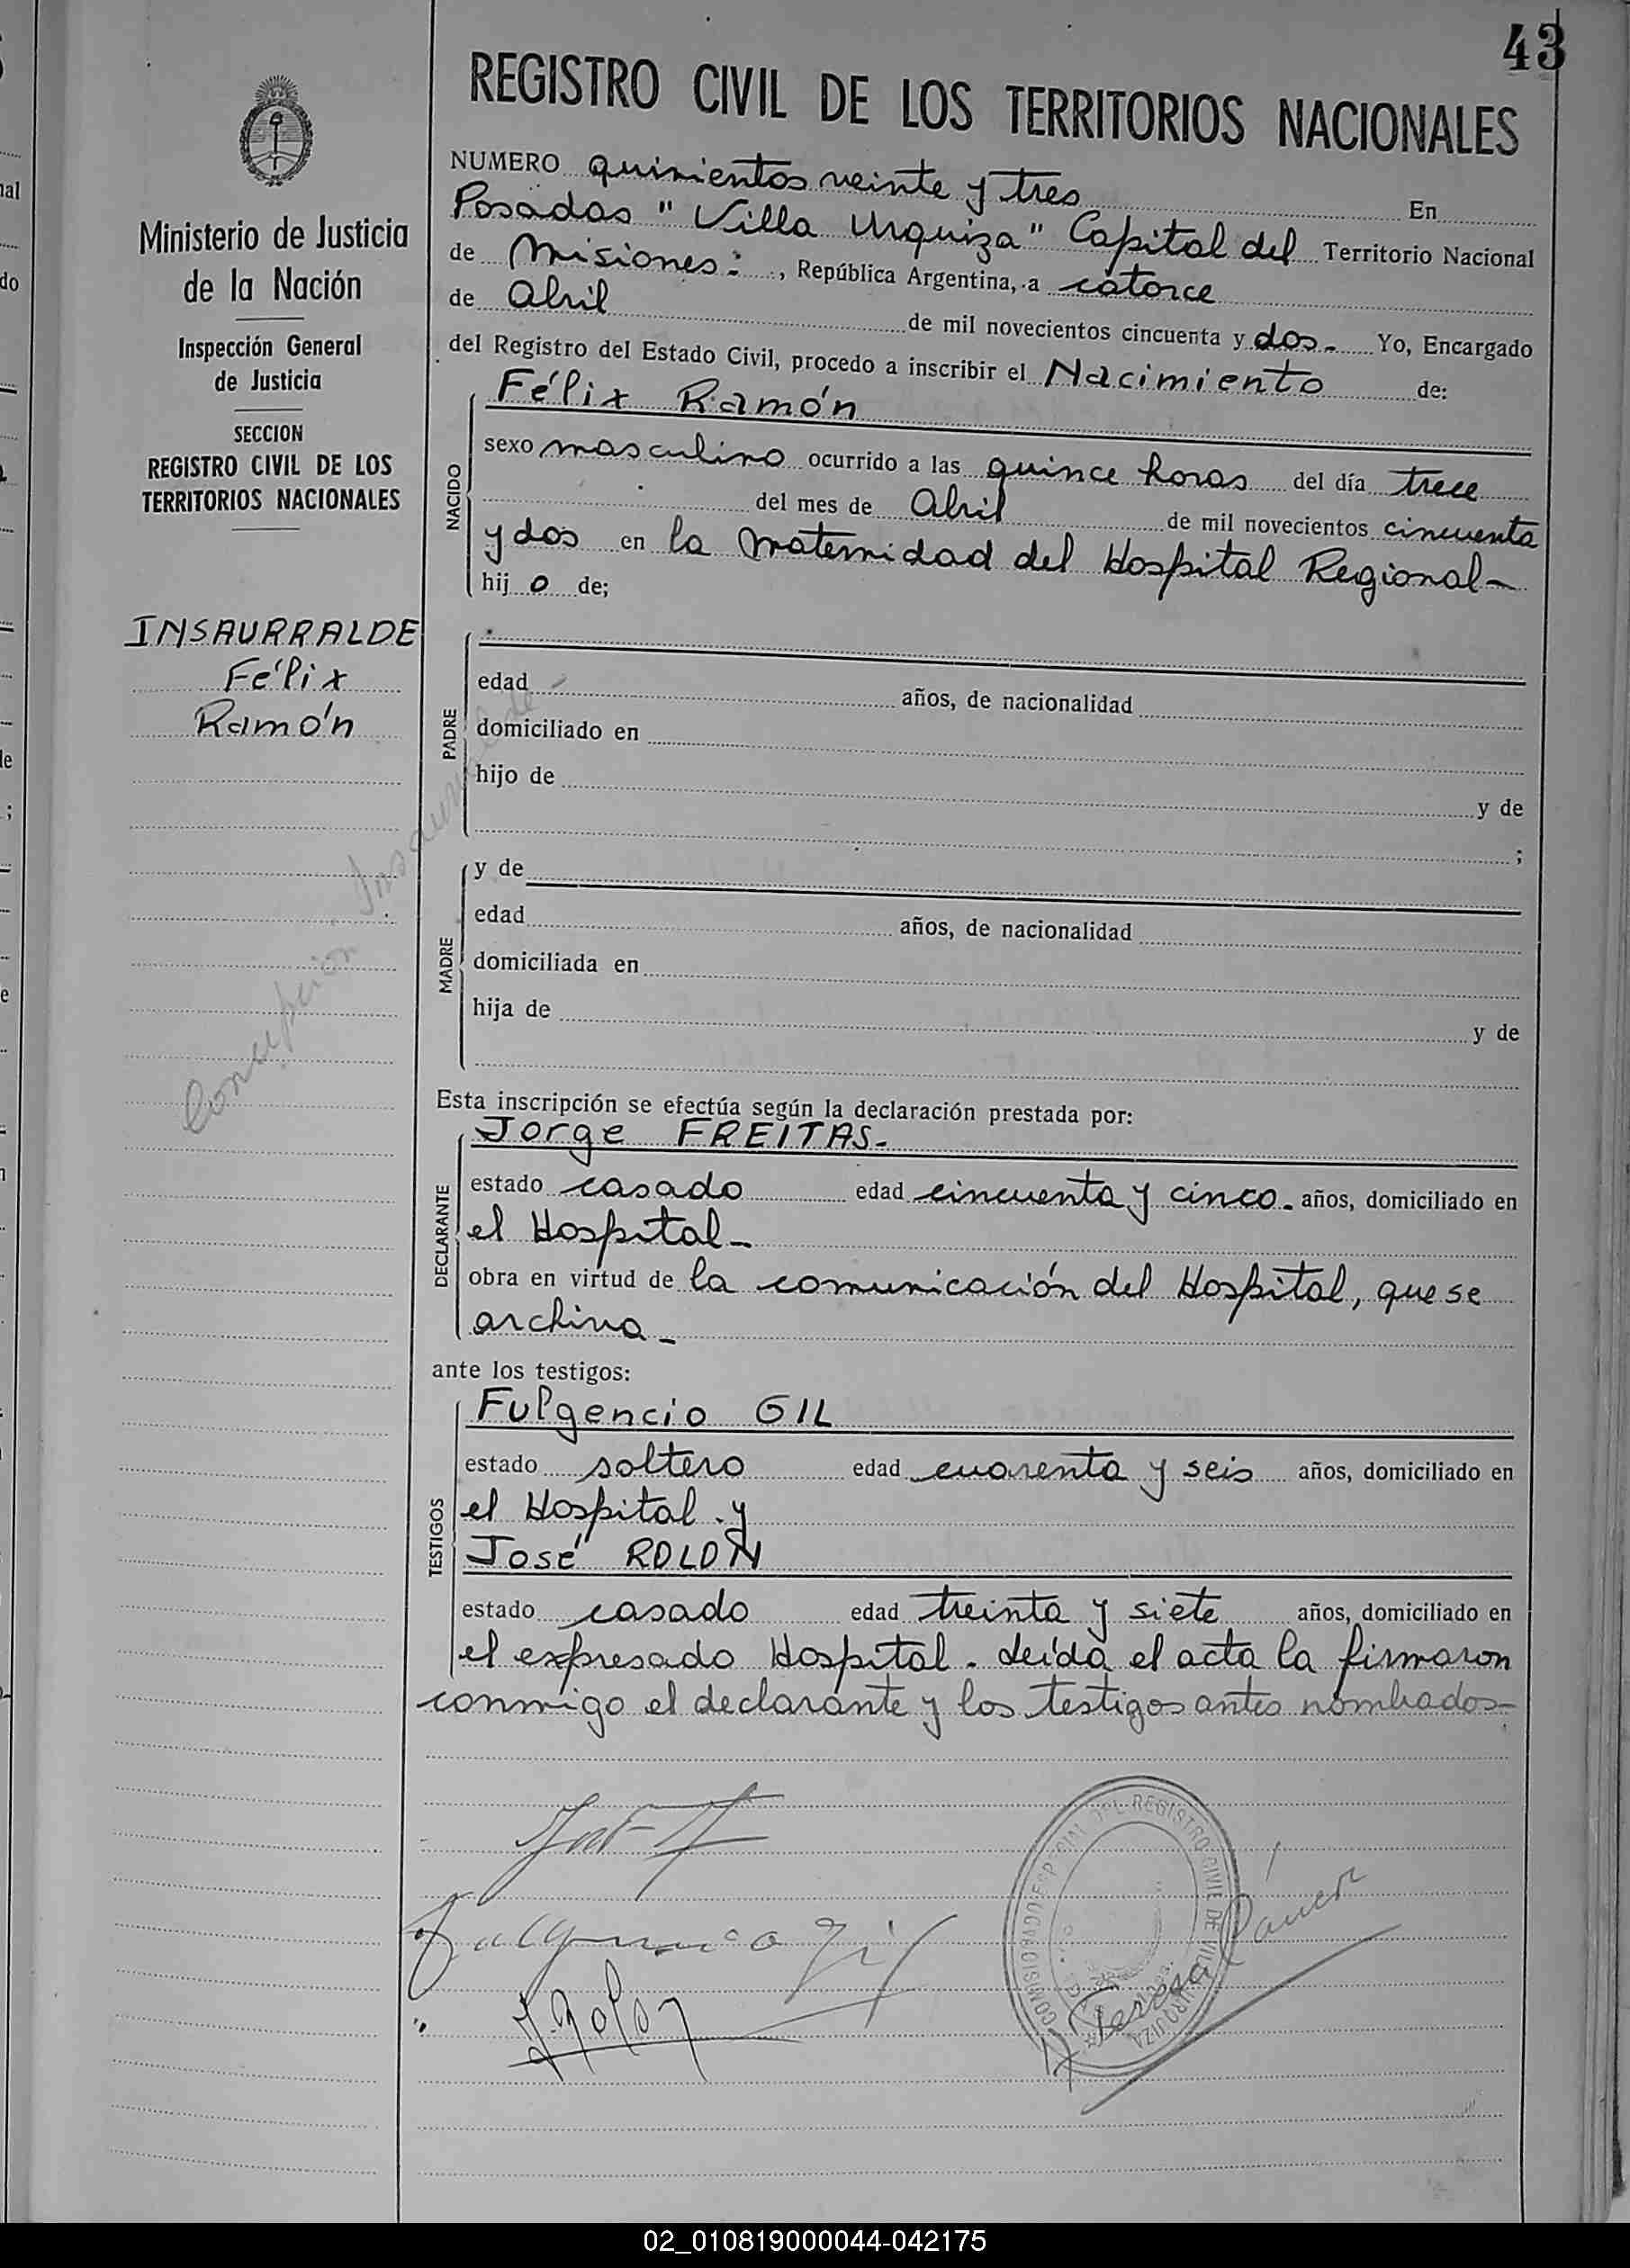 43
REGISTRO CIVIL DE LOS TERRITORIOS NACIONALES
Ministerio de Justicia
de la Nación
Inspección General
de Justicia
SECCION
REGISTRO CIVIL DE LOS
TERRITORIOS NACIONALES
INSAURRALDE
Félix
Ramón
Concepcion Insaurralde
NUMERO quinientos veinte y tres En
Posadas "Villa Urquiza" Capital del Territorio Nacional
de Misiones: , República Argentina, a catorce
de Abril de mil novecientos cincuenta y dos. Yo, Encargado
del Registro del Estado Civil, procedo a inscribir el Nacimiento de:
NACIDO
Félix Ramón
sexo masculino ocurrido a las quince horas del día trece
del mes de Abril de mil novecientos cincuenta
y dos en la Maternidad del Hospital Regional-
hij o de;
PADRE
edad años, de nacionalidad
domiciliado en
hijo de y de
;
MADRE
y de
edad años, de nacionalidad
domiciliada en
hija de y de
Esta inscripción se efectúa según la declaración prestada por:
DECLARANTE
Jorge FREITAS.
estado casado edad cincuenta y cinco. años, domiciliado en
el Hospital-
obra en virtud de la comunicación del Hospital, que se
archiva-
ante los testigos:
TESTIGOS
Fulgencio GIL
estado soltero edad cuarenta y seis años, domiciliado en
el Hospital. y
José ROLON
estado casado edad treinta y siete años, domiciliado en
el expresado Hospital. Leída el acta la firmaron
conmigo el declarante y los testigos antes nombrados-
Fulgencio Gil
J. Rolon
DEL REGISTRO CIVIL DE VILLA URQUIZA
02_010819000044-042175